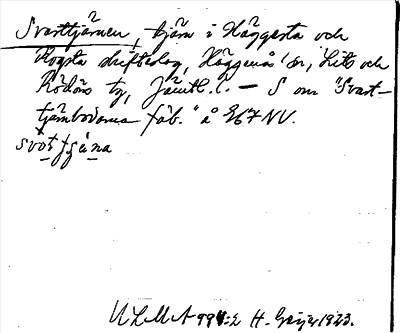 Svarttjärnen, tjärn i Häggesta och
Kogsta skifteslag, Häggenås sn, Lits och
Rödöns tg, Jämtl. l. — S om "Svart-
tjärnbodarna fäb." å 267 NV.
svɔtʃɛ̃na
ULMA 99 1:2 H. Geijer 1923.